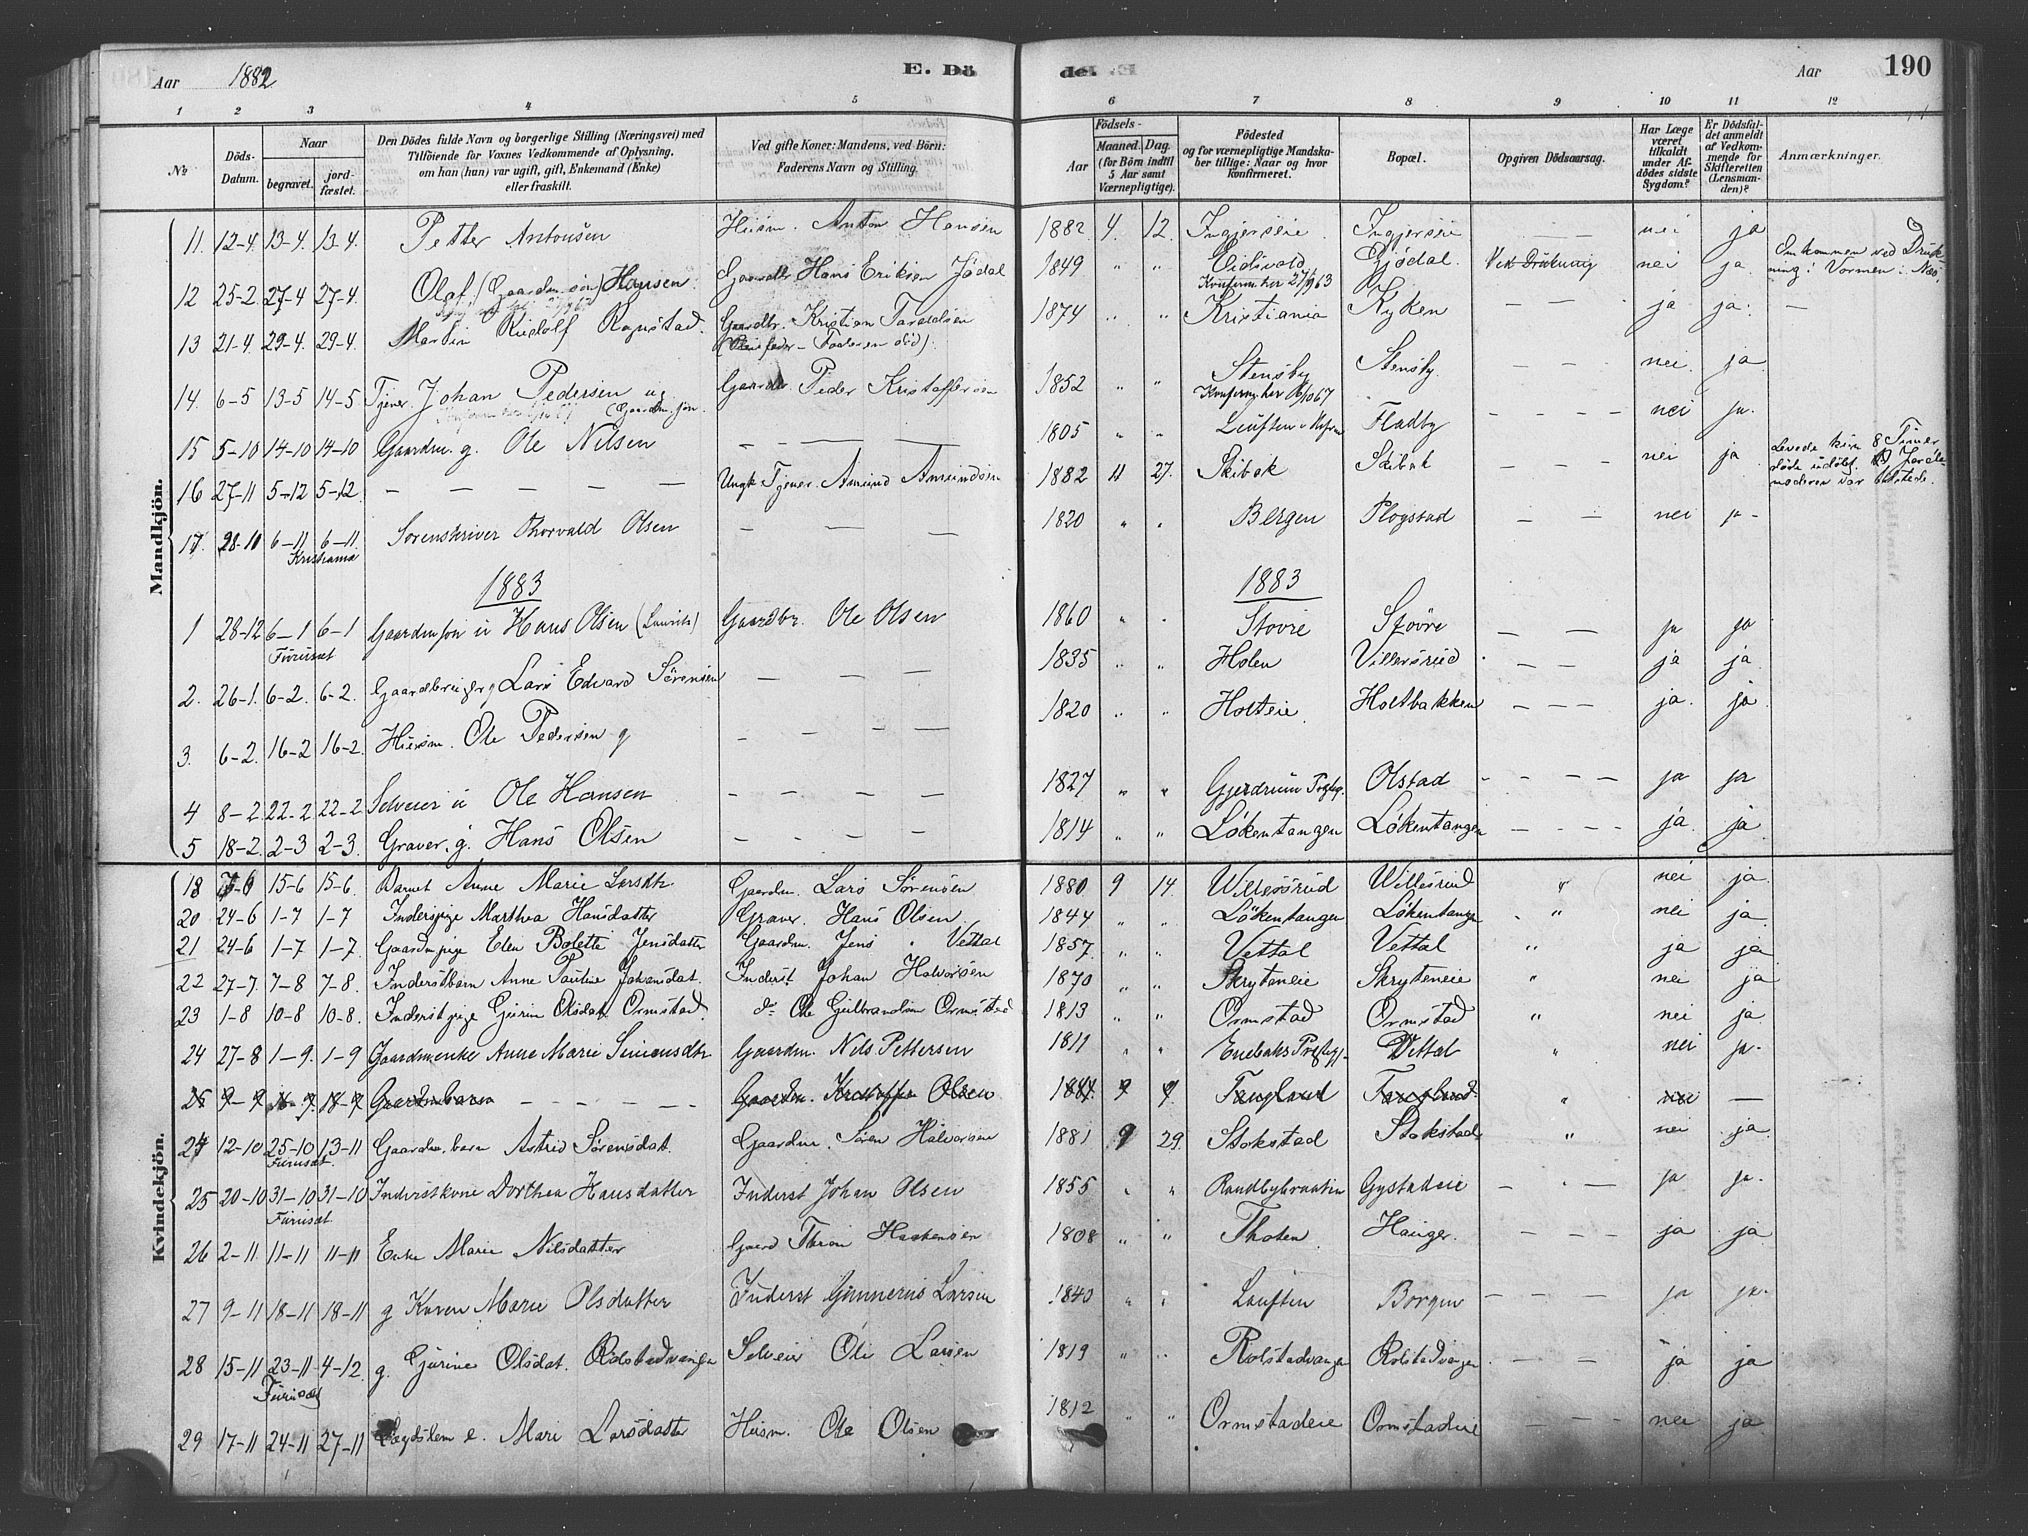 Aar 1882 E. Dö
del. E Aar 190
1 2 3 4 5 6 7 8 9 10 11 12
No Döds-Datum. Naar begravet. jord-fæstet. Den Dödes fulde Navn og borgerlige Stilling (Næringsvei) med Tilföiende for Voxnes Vedkommende af Oplysning, om han (hun) var ugift, gift, Enkemand (Enke) eller fraskilt. Ved gifte Koner: Mandens, ved Börn: Faderens Navn og Stilling. Födsels- Aar Maaned. Dag. (for Börn indtil 5 Aar samt Værnepligtige). Födested og for værnepligtige Mandskaber tillige: Naar og hvor konfirmeret. Bopæl. Opgiven Dödsaarsag. Har Læge været tilkaldt under Afdödes sidste Sygdom? Er Dödsfaldet anmeldt af Vedkommende for Skifteretten (Lensmanden)? Anmærkninger.
Mandkjön.
11. 12-4. 13-4. 13-4. Petter Antonsen Husm. Anton Hansen 1882. 4. 12. Ingjerseie Ingjerseie — nei ja
12 25-2. 27-4 27-4. Olaf (Gaardm. sön) Hansen Gaardbr. Hans Eriksen Jødal 1849 " " Eidsvold Konfirm. her 27/9 63 Gjødal. Ved Drukning nei ja. Omkommen ved Drukning i Vormen i Næs.
13 21-4. 29-4. 29-4. Martin Rudolf Rognstad. Gaardbr. Kristian Taraldsen (Pleiefader - Faderen död). 1874 " " Kristiania Kyken — — ja ja. —
14. 6-5 13-5 14-5 Tjener Johan Pedersen ug (Gaardm. sön. Gaardbr. Peder Kristoffersen 1852 " " Stensby Konfirm. her 6/10 67 Stensby. — — nei. ja
15 5-10 14-10 14-10 Gaardm. g. Ole Nilsen — — — 1805 " " Fladby — — — — nei ja.
16 27-11 5-12 5-12. — — — — — Ungk. Tjener. Amund Amundsen 1882 11 27. Skibak Skibak nei ja Levede kun 8 Timer döde udöbt. Jordemoderen var tilstede.
17. 28-10 6-11 6-11. Kristiania Sorenskriver Thorvald Olsen — — — 1820 " " Bergen Plogstad — — nei ja-
1883 1883
1 28-12 6-1 6-1 Furuset Gaardm sön u Hans Olsen (Laurits) Gaardbr. Ole Olsen 1860 " " Stovre Støvre — — ja ja
2. 26-1. 6-2. 6-2. Gaardbruger g Lars Edvard Sörensen — — — 1835 " " Holen Villersrud — — ja ja
3. 6-2. 16-2 16-2. Husm. Ole Pedersen g — — — — 1820 " " Holteie Holtbakken — — — ja. ja
4 8-2 22-2 22-2 Selveier u Ole Hansen — — — — 1827 " " Gjerdrum Prgj. Olstad — — — — ja ja
5 18-2. 2-3 2-3. Graver. g. Hans Olsen — — — — 1814 " " Løkentangen Løkentangen — — — — ja. ja
Kvindekjön.
18 7-6 15-6 15-6. Barnet Anne Marie Larsdtr Gaardm. Lars Sørensen 1880 9 14. Willersrud Willersrud " nei ja.
20 24-6 1-7 1-7 Inderspige Marthea Hansdatter Graver. Hans Olsen 1844 " " Løkentangen Løkentangen " nei ja.
21 24-6 1-7 1-7. Gaardm pige Elen Bolette Jensdatter Gaardm. Jens " Vettal 1857. " " Vettal Vettal " ja ja
22 27-7. 7-8 7-8. Inderstbarn Anne Pauline Johansdat. Inderst. Johan Halvorsen 1870 " " Skryteneie Skryteneie " nei ja
23 1-8 10-8 10-8. Inderst pige Gurin Olsdat. Ormstad. do Ole Gulbrandsen Ormstad 1813 " " Ormstad Ormstad " nei ja
24 27-8 1-9. 1-9 Gaardmenke Anne Marie Simensdtr Gaardm. Nils Pettersen 1811 " " Enebaks Prestegj. Vettal " nei ja.
Gaardm. Kristoffer Olsen " nei —
24 12-10 25-10 13-11 Furuset Gaardm. barn Astrid Sörensdat. Gaardm. Sören Halvorsen 1881 9 29. Stokstad Stokstad " nei ja.
25 20-10 31-10 31-10 Furuset Inderstkone Dorthea Hansdatter Inderst Johan Olsen 1855 " " Randbybraaten Gystadeie — — ja ja.
26 2-11 11-11 11-11 Enke Marie Nilsdatter Gaard Thron Haakensen 1808 " " Thoten Hauger. — — — ja ja
27 9-11 18-11 18-11 g Karen Marie Olsdatter Inderst Gunnerus Larsen 1840 " " Borgen — — — — ja ja.
28 15-11 23-11 4-12. Furuset g. Gurine Olsdat. Rolstadvangen Selveier Ole Larsen 1819 " " Rolstadvangen Rolstadvangen — — — ja ja
29 17-11 24-11 27-11 Lægdslem e. Mari Larsdatter Husm. Ole Olsen 1812 " " Ormstadeie Ormstadeie — — — nei ja